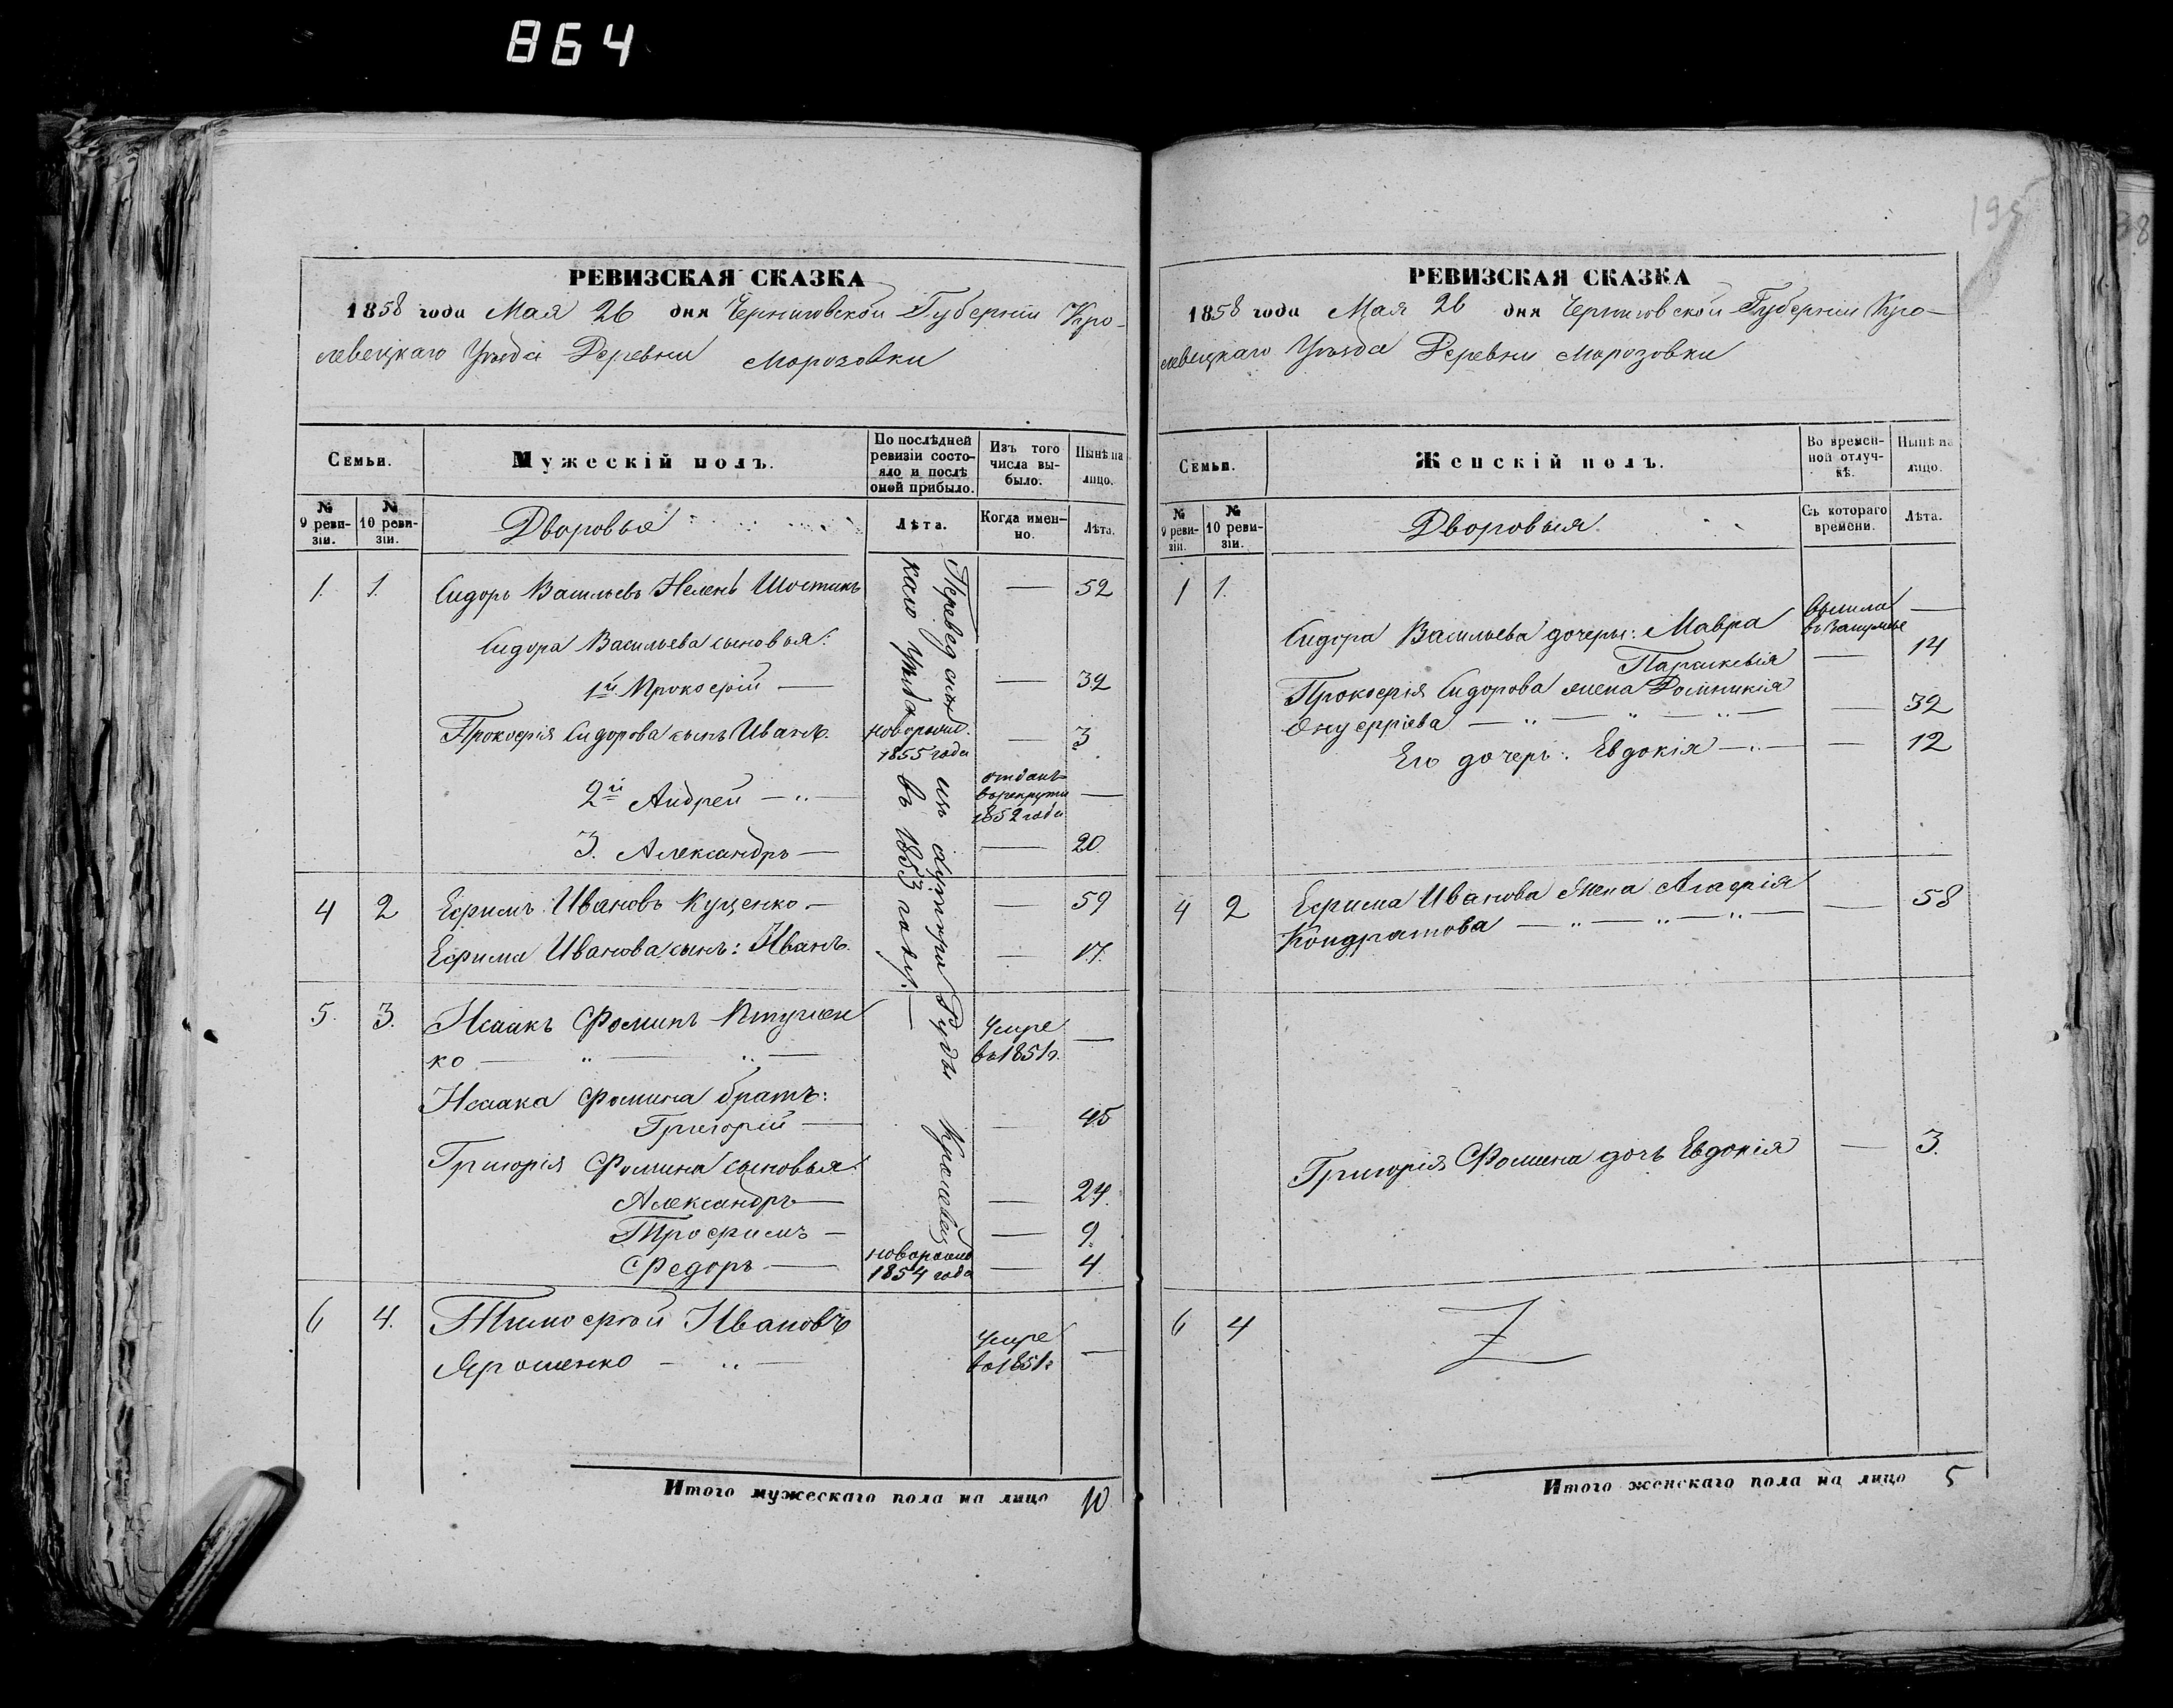 864
195
98
РЕВИЗСКАЯ СКАЗКА
1858 года Мая 26 дня Черниговской Губерніи Кро-
левецкаго Уѣзда Деревни Морозовки
Семьи.
Мужескій полъ.
По послѣдней ревизіи состояло и послѣ оной прибыло.
Изъ того числа выбыло.
Нынѣ на лицо.
№ 9 ревизіи.
№ 10 ревизіи.
Дворовые
Лѣта.
Когда именно.
Лѣта.
1. 1. Сидоръ Васильевъ Шостакъ — 52
Сидора Васильева сыновья:
1й Прокофій — — 32
Прокофія Сидорова сынъ Иванъ. новорожд. 1855 года — 3
2й Андрей — отданъ в рекруты 1852 года —
3. Александръ — — 20
Переведены изъ хутора Руды Кролевец
каго Уѣзда въ 1853 году. —
4 2 Ефимъ Ивановъ Куценко — — 59
Ефима Иванова сынъ: Иванъ — 17.
5. 3. Исаакъ Фоминъ Птушен
ко — умре въ 1851 г. —
Исаака Фомина братъ:
Григорій — — 45
Григорія Фомина сыновья:
Александръ — — 24.
Трофимъ — — 9.
Федоръ — новорожд 1854 года — 4
6 4. Тимофей Ивановъ
Ярошенко — умре въ 1851 г —
Итого мужескаго пола на лицо 10
РЕВИЗСКАЯ СКАЗКА
1858 года Мая 26 дня Черниговской Губерніи Кро-
левецкаго Уѣзда Деревни Морозовки
Семьи.
Женскій полъ.
Во временной отлучкѣ.
Нынѣ на лицо.
№ 9 ревизіи.
№ 10 ревизіи.
Дворовыя.
Съ котораго времени.
Лѣта.
1 1.
Сидора Васильева дочеры: Мавра вышла в замужье —
Параскевія — 14
Прокофія Сидорова жена Домникія
Онуфріева — — 32
Его дочеръ: Евдокія — — 12
4 2 Ефима Иванова жена Агафія — 58
Кондратова —
Григорія Фомина дочъ Евдокія — 3.
6 4
Итого женскаго пола на лицо 5